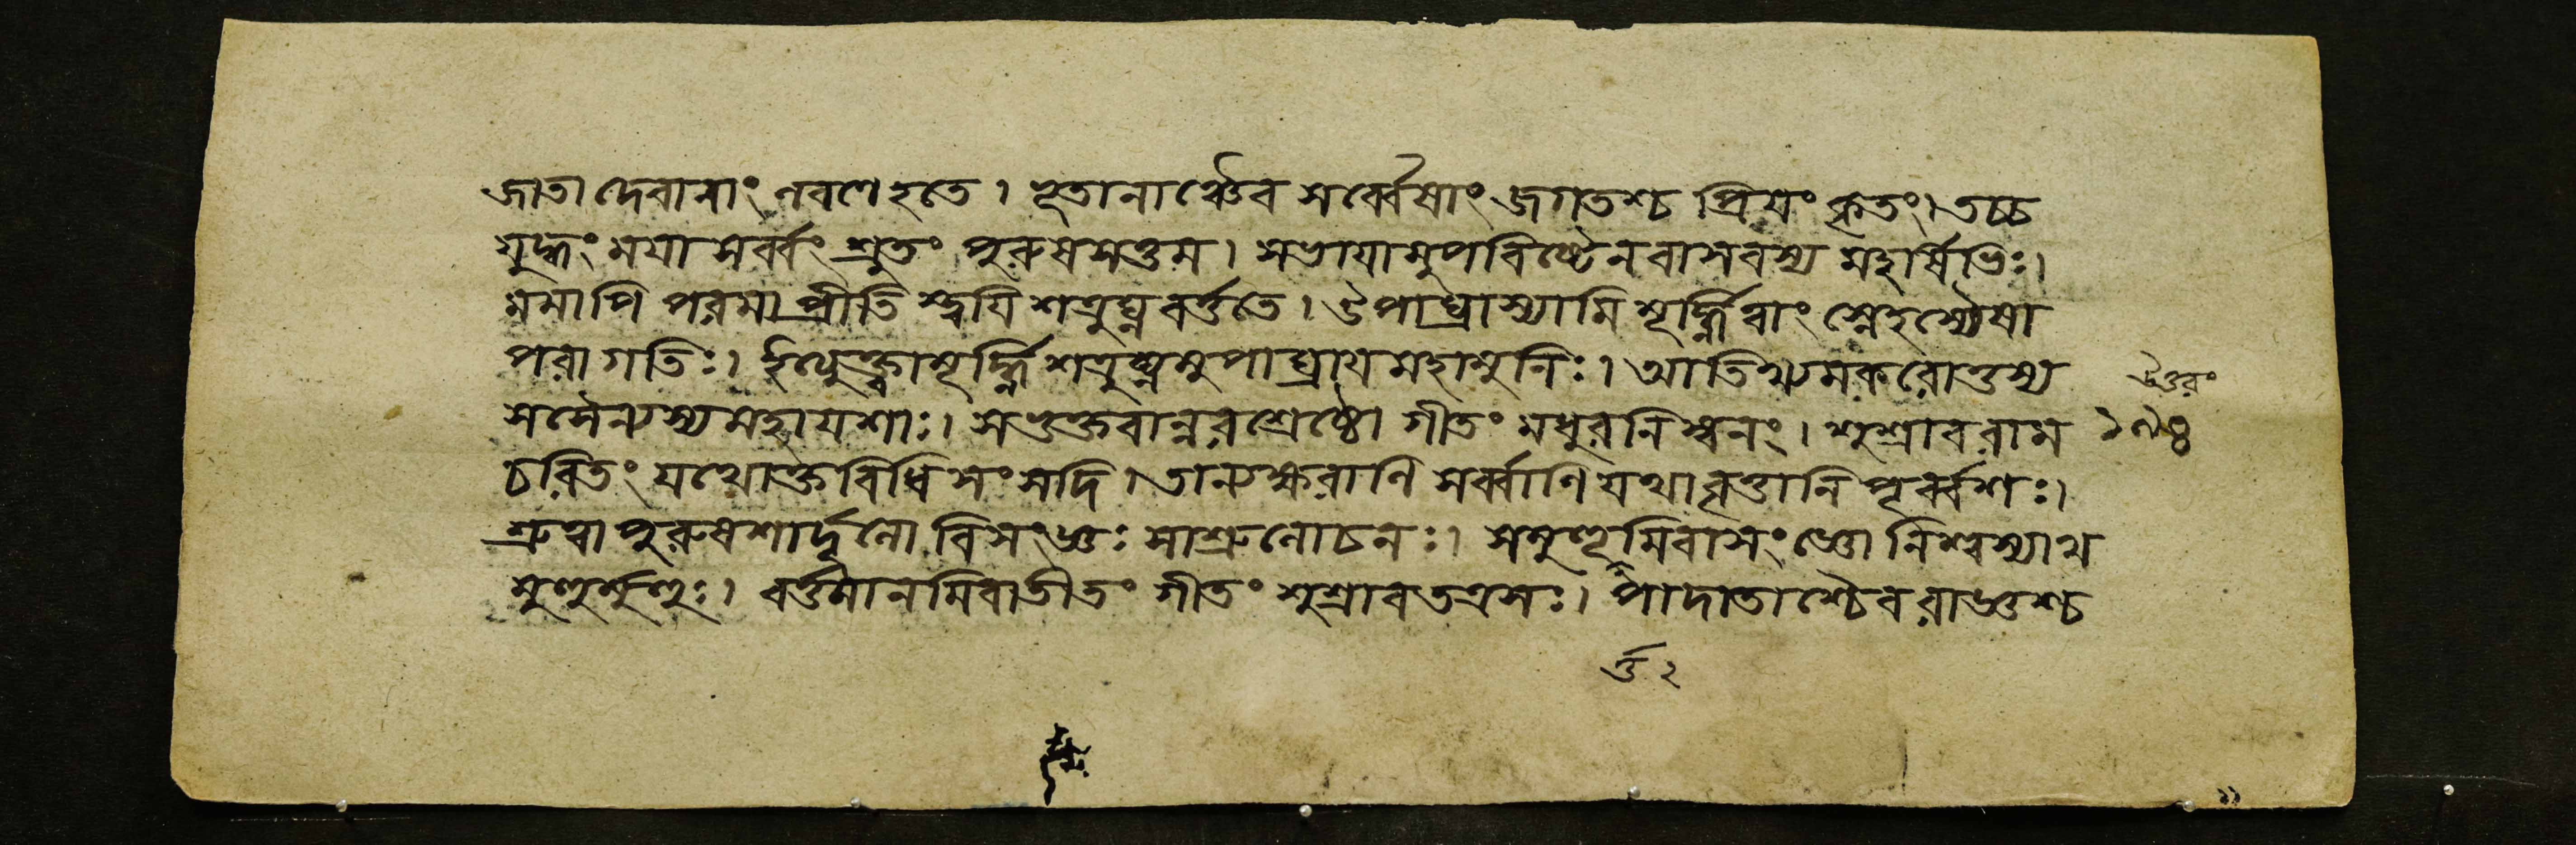 জাতা দেবানাং লবণে হতে। ভূতানাঞ্চৈব সর্ব্বেষাং জগতশ্চ প্রিয়ং কৃতং। তচ্চ
যুদ্ধং ময়া সর্ব্বং শ্রুতং পুরুষসত্তম। সভায়ামুপবিষ্টেন বাসবস্য মহর্ষিভিঃ।
মমাপি পরমা প্রীতি স্ত্বয়ি শত্রুঘ্ন বর্ত্ততে। উপাঘ্রাস্যামি মূর্দ্ধ্নি ত্বাং স্নেহস্যৈষা
পরা গতিঃ। ইত্যুক্ত্বা মূর্দ্ধ্নি শত্রুঘ্নমুপাঘ্রায় মহামুনিঃ। আতিথ্যমকরোত্তস্য
সসৈন্যস্য মহাযশাঃ। স ভুক্তবান্নরশ্রেষ্ঠো গীতং মধুরনিস্বনং। শুশ্রাব রাম
চরিতং যথোক্তবিধি সংসদি। তান্যক্ষরাণি সর্ব্বাণি যথাবৃত্তানি পূর্ব্বশঃ।
শ্রুত্বা পুরুষশার্দূলো বিসংজ্ঞঃ সাশ্রুলোচনঃ। স মুহূর্ত্তমিবাসংজ্ঞো নিশ্বস্যাথ
মুহুর্ম্মুহুঃ। বর্ত্তমানমিবাতীতং গীতং শুশ্রাব তত্র সঃ। পাদাতাশ্চৈব রাজ্ঞশ্চ
উত্তরং
১৭৪
র্ত্ত ২